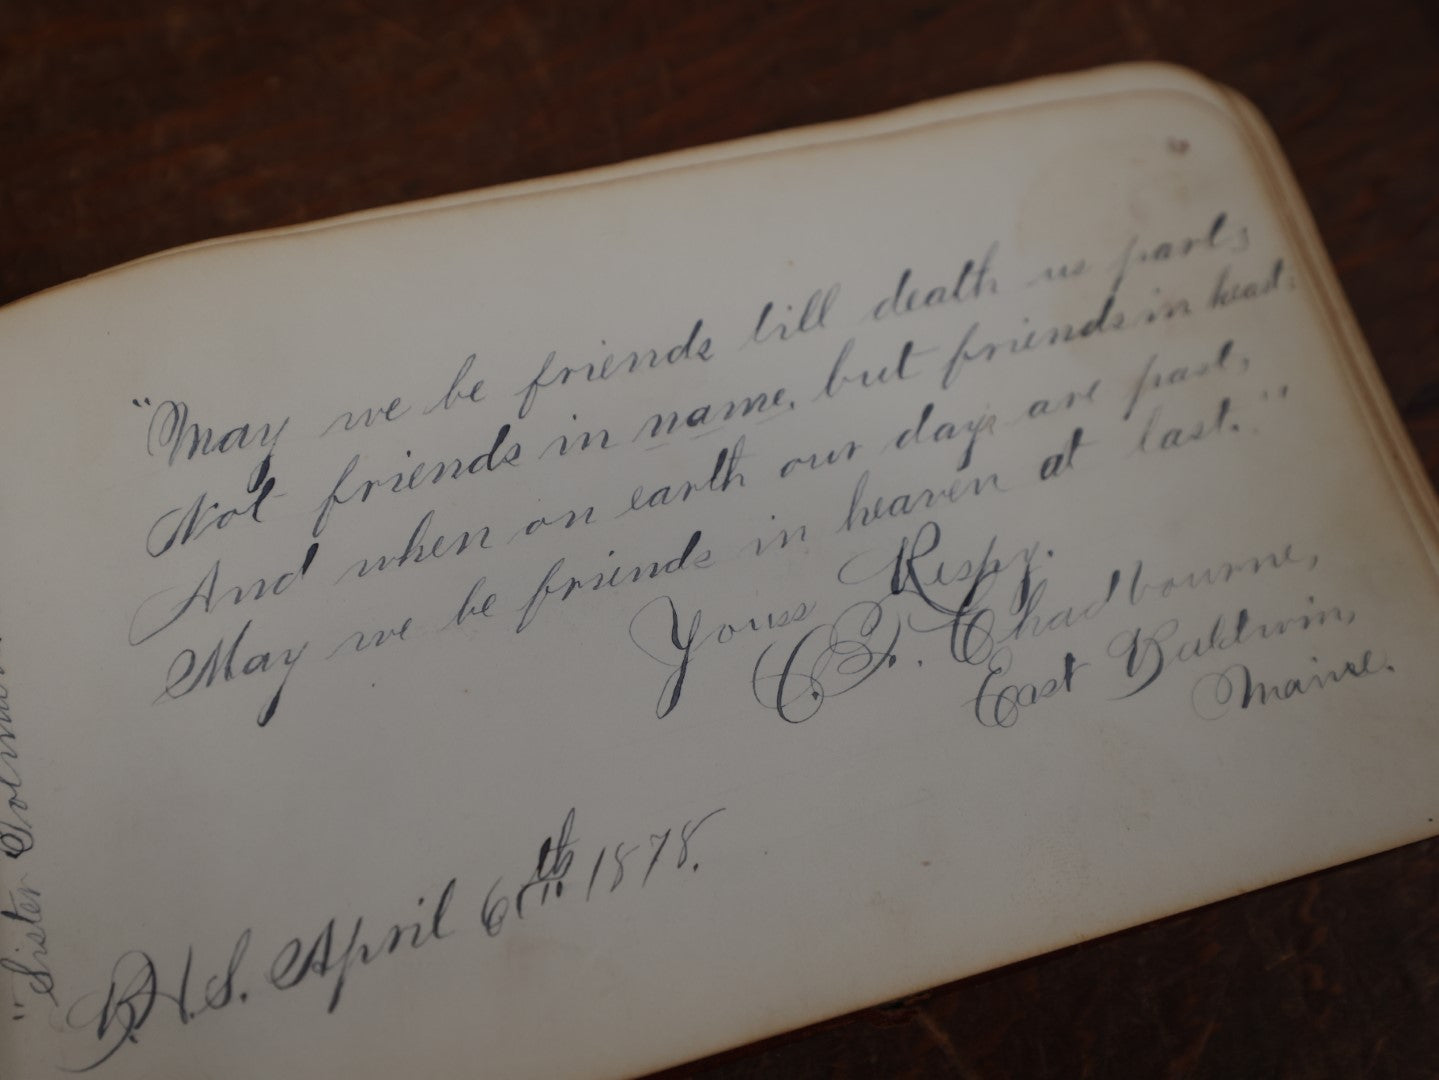 "May we be friends till death us part;
Not friends in name, but friends in heart:
And when on earth our days are past,
May we be friends in heaven at last."
Yours Respy.
C. F. Chadbourne,
East Baldwin,
Maine.
B.H.S. April 6th 1878.
"Sister